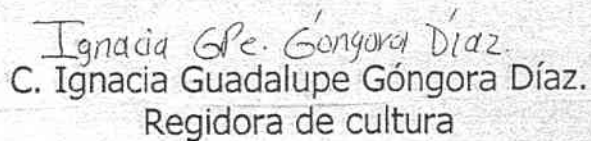 Ignacia GPe. Góngora Díaz.
C. Ignacia Guadalupe Góngora Díaz.
Regidora de cultura